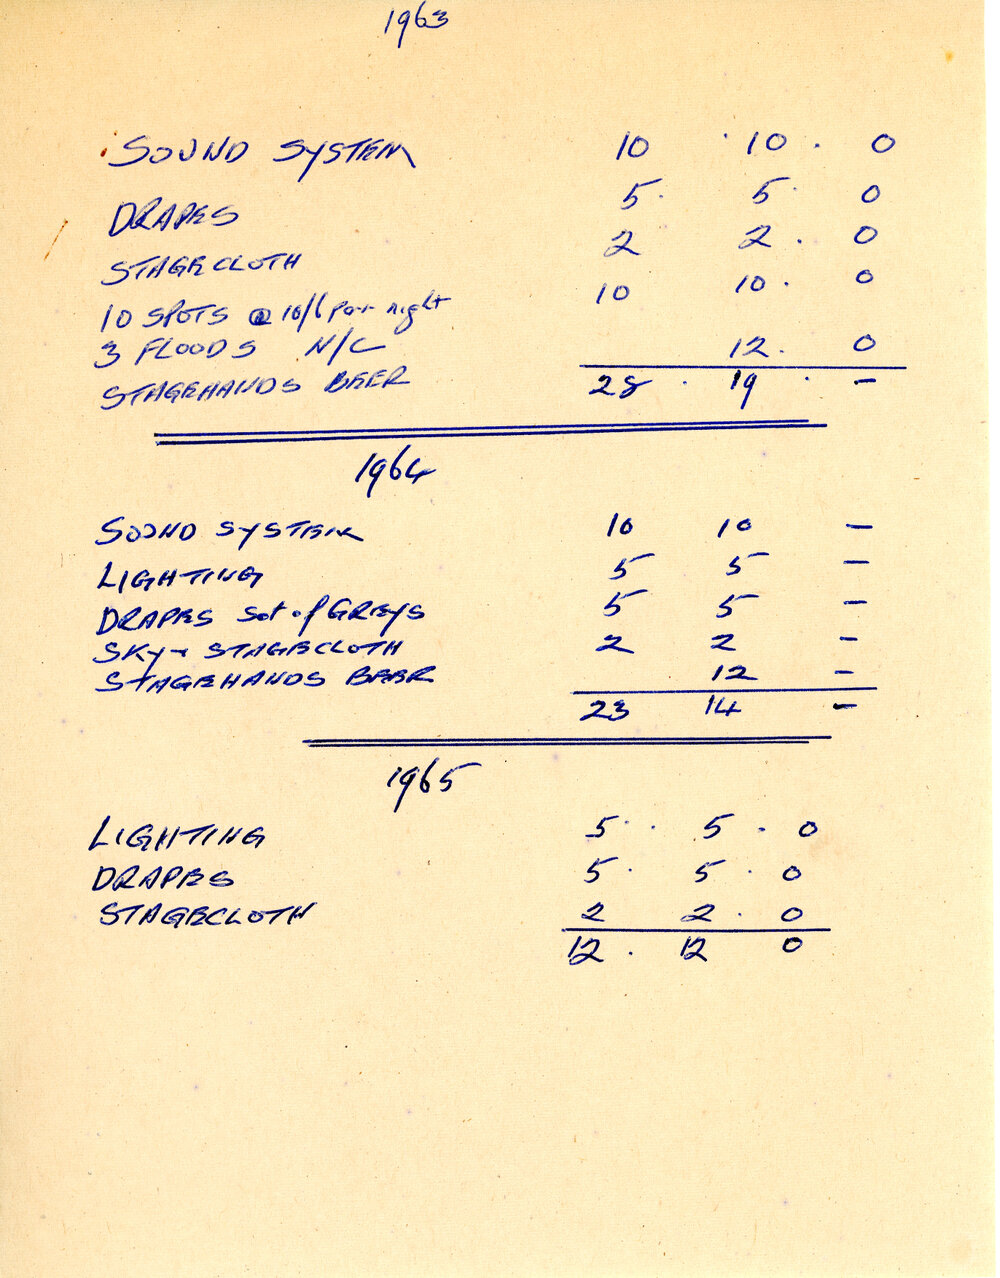 1963
SOUND SYSTEM 10 . 10 . 0
DRAPES 5 . 5 . 0
STAGECLOTH 2 2 . 0
10 SPOTS @ 10/6 per night 10 10 . 0
3 FLOODS N/C
STAGEHANDS BEER 12 . 0
28 . 19 . -
1964
SOUND SYSTEM 10 10 -
LIGHTING 5 5 -
DRAPES Set of GREYS 5 5 -
SKY + STAGECLOTH 2 2 -
STAGEHANDS BEER 12 -
23 14 -
1965
LIGHTING 5 . 5 . 0
DRAPES 5 . 5 . 0
STAGECLOTH 2 2 . 0
12 . 12 0